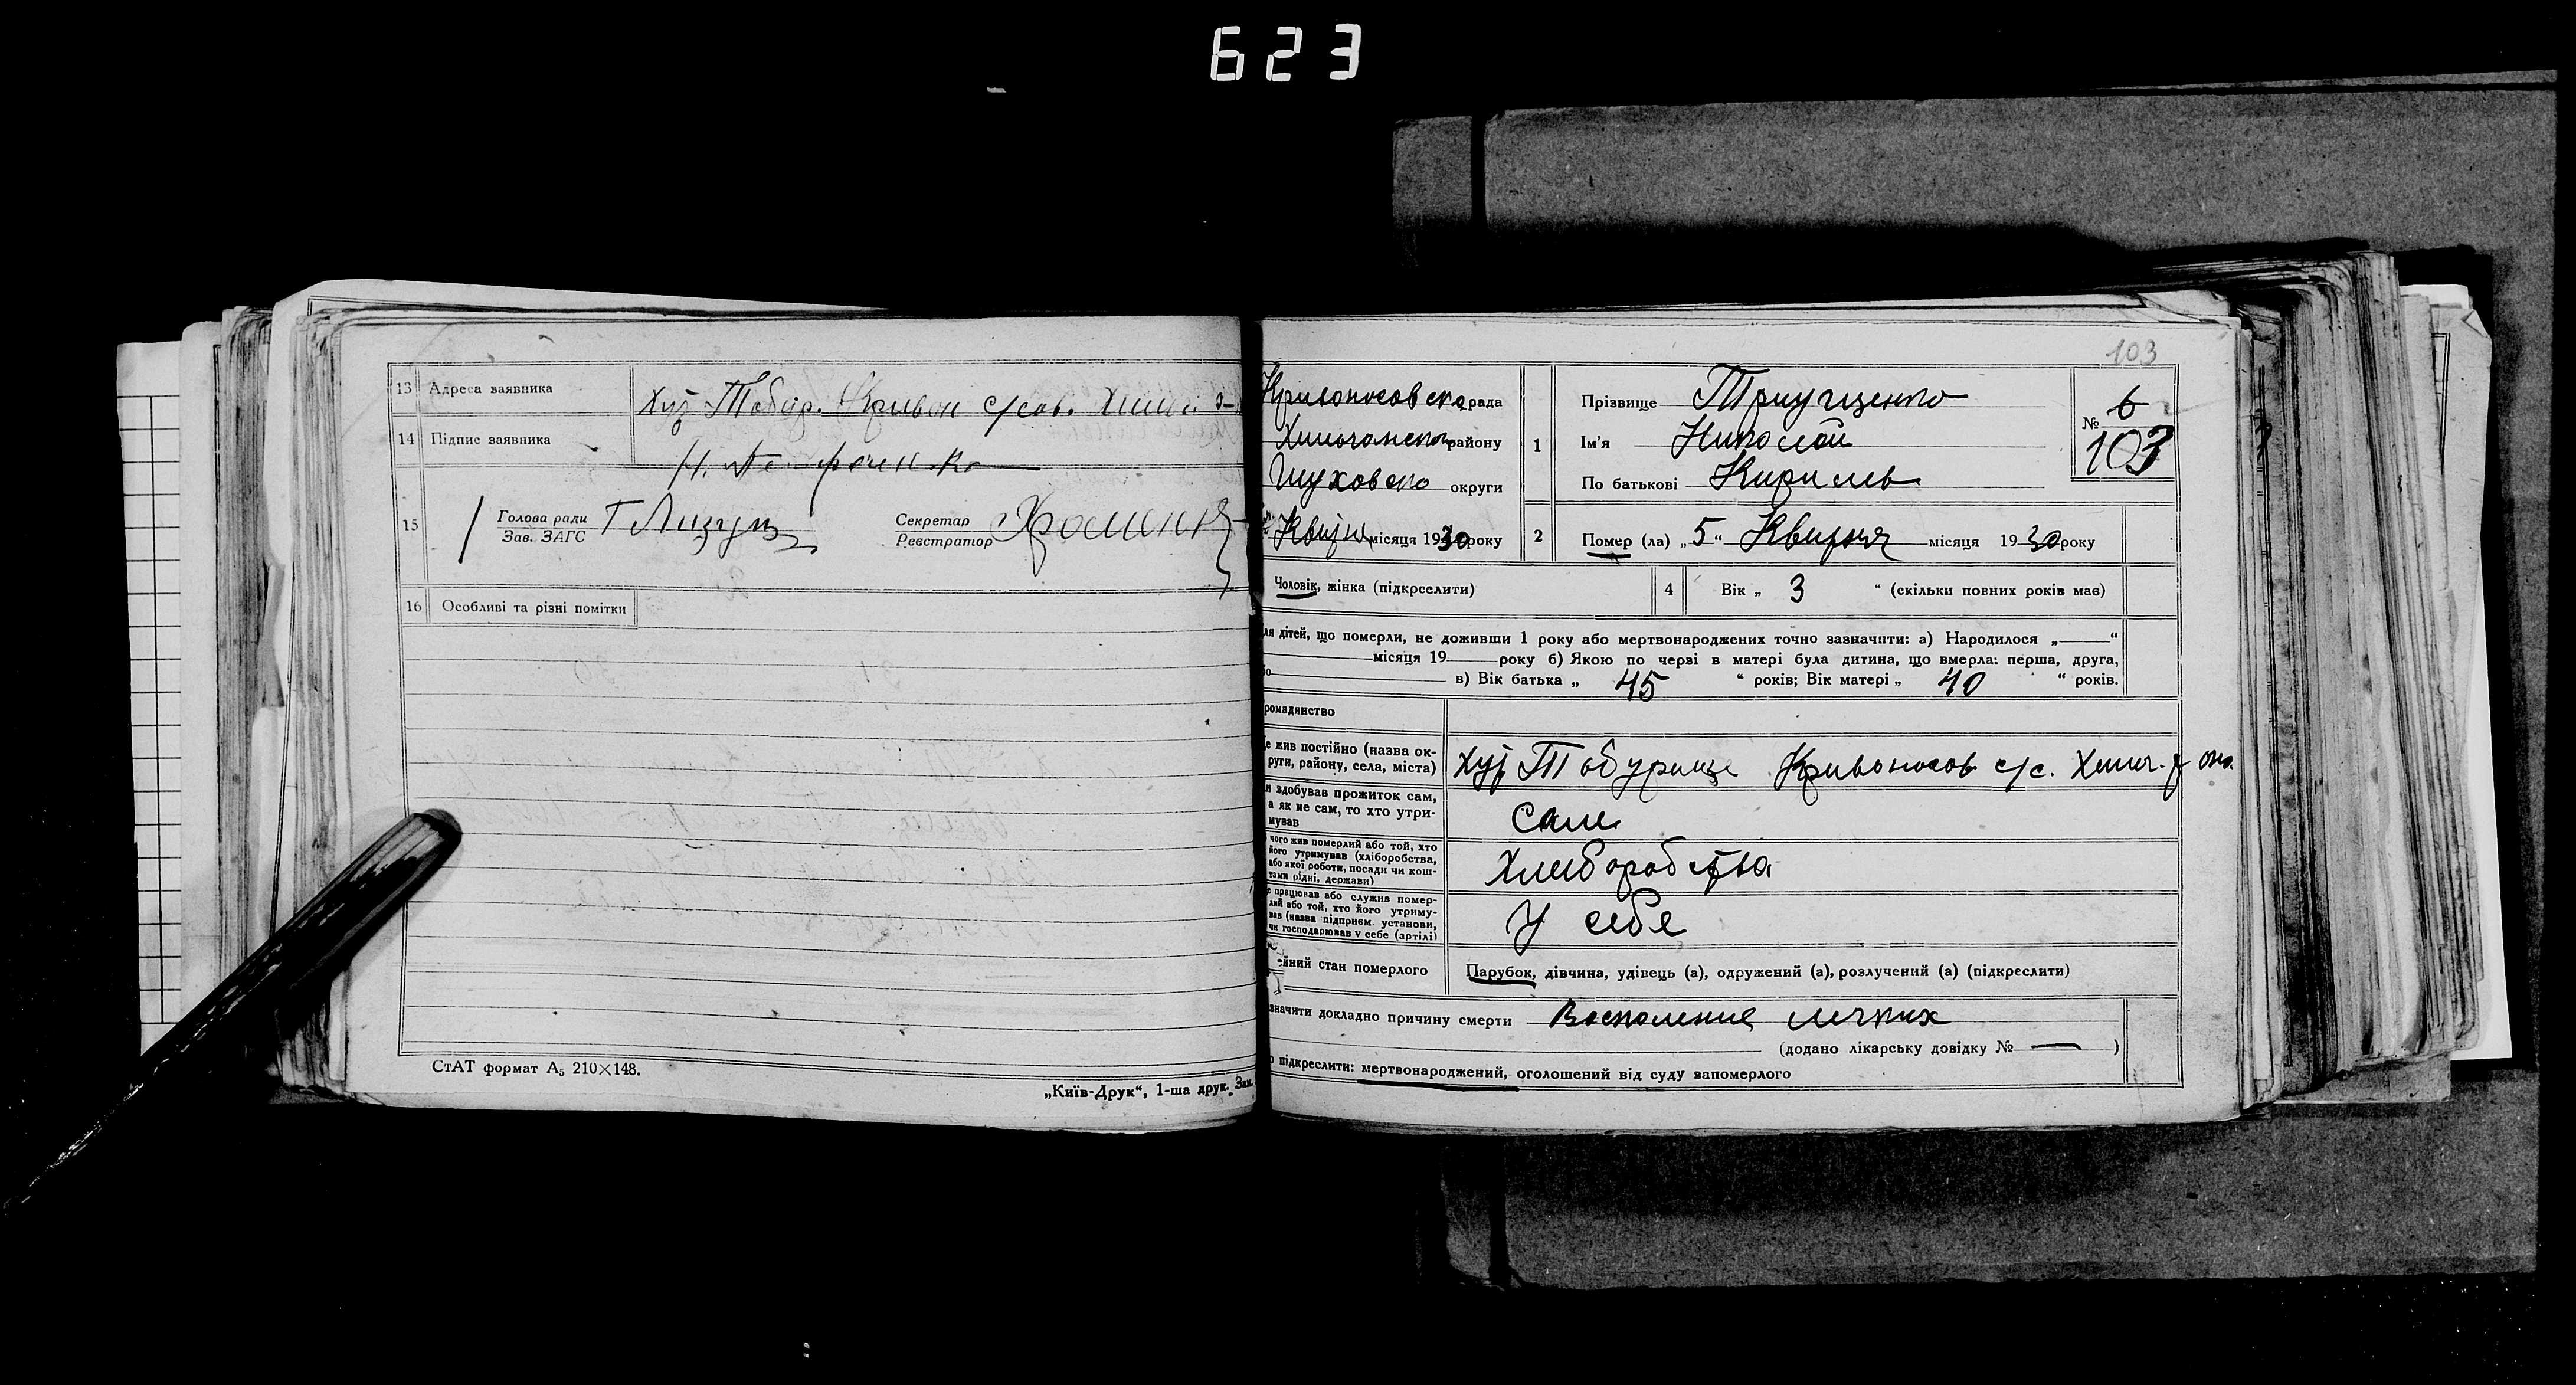 623
13 Адреса заявника
Хут Табур. Кривон с/сов.
14 Підпис заявника
15 Голова ради
Зав. ЗАГС
Секретар
Реєстратор
16 Особливі та різні помітки
СтАТ формат А₅ 210×148.
„Київ-Друк“, 1-ша друк. Зам.
103
Кривоносовска рада
району
округи
місяця 1930 року
1
Прізвище
Ім’я Николай
По батькові Кирилов
№ 6
103
2 Помер (ла) „5“ Квитня місяця 1930 року
Чоловік, жінка (підкреслити)
4 Вік „ 3 “ (скільки повних років мав)
ля дітей, що померли, не доживши 1 року або мертвонароджених точно зазначити: а) Народилося „ “
місяця 19 року б) Якою по черзі в матері була дитина, що вмерла: перша, друга,
в) Вік батька „ 45 “ років; Вік матері „ 40 “ років.
ромадянство
е жив постійно (назва ок-
руги, району, села, міста)
хут Табурище Кривоносов с/с.
и здобував прожиток сам,
а як не сам, то хто утри-
мував
сам
чого жив померлий або той, хто
його утримував (хліборобства,
або якої роботи, посади чи кош-
тами рідні, держави)
Хлиборобства
е працював або служив помер-
лий або той, хто його утриму-
вав (назва підприєм. установи,
чи господарював у себе (артілі)
У себе
ейний стан померлого
Парубок, дівчина, удівець (а), одружений (а), розлучений (а) (підкреслити)
значити докладно причину смерти Воспаление легких
(додано лікарську довідку № — )
о підкреслити: мертвонароджений, оголошений від суду запомерлого